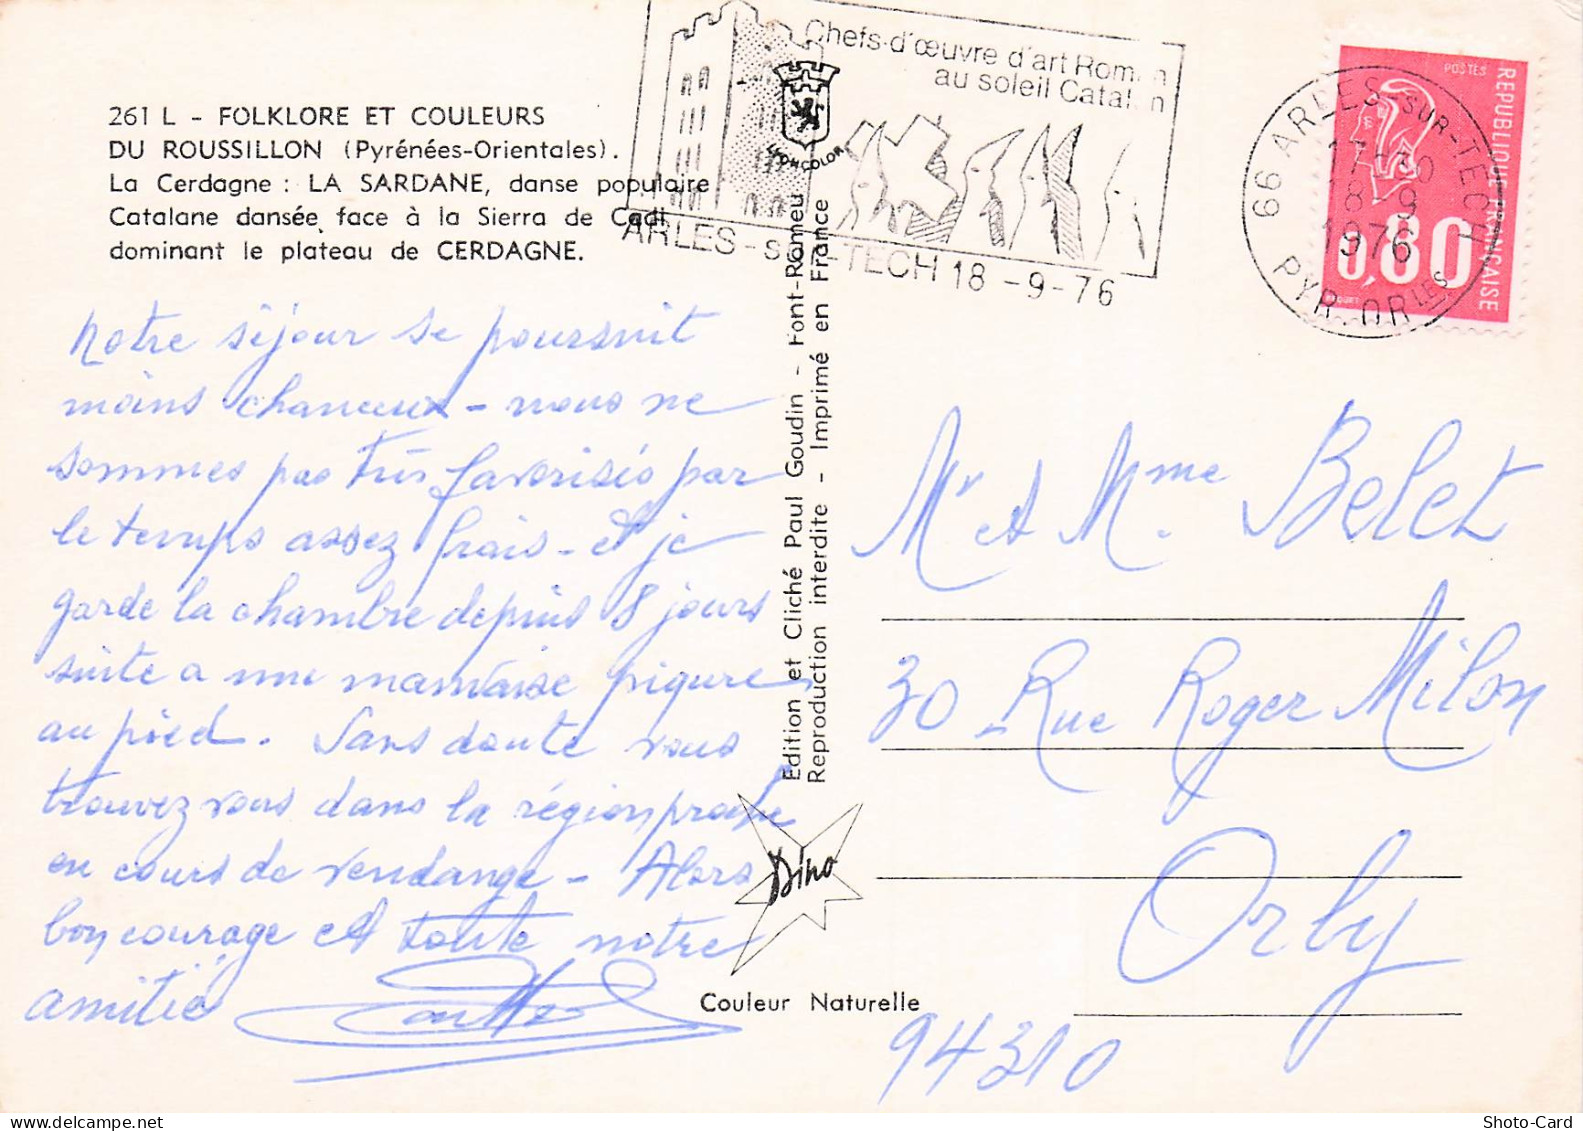 261 L - FOLKLORE ET COULEURS
DU ROUSSILLON (Pyrénées-Orientales).
La Cerdagne : LA SARDANE, danse populaire
Catalane dansée face à la Sierra de Cadi
dominant le plateau de CERDAGNE.
Chefs-d'œuvre d'art Roman
au soleil Catalan
LYONCOLOR
ARLES-sur-TECH 18-9-76
66 ARLES-SUR-TECH
17-30
18-9
1976
PYR.ORLES
POSTES
REPUBLIQUE FRANÇAISE
0,80
Notre séjour se poursuit
moins chanceux - nous ne
sommes pas très favorisés par
le temps assez frais - et je
garde la chambre depuis 8 jours
suite a une mauvaise piqure
au pied. Sans doute vous
trouvez vous dans la région proche
en cours de vendange - Alors
bon courage et toute notre
amitié
Edition et Cliché Paul Goudin - Font-Romeu
Reproduction interdite - Imprimé en France
Dino
Couleur Naturelle
Mr et Mme Belet
30 Rue Roger Milon
Orly
94310
Shoto-Card